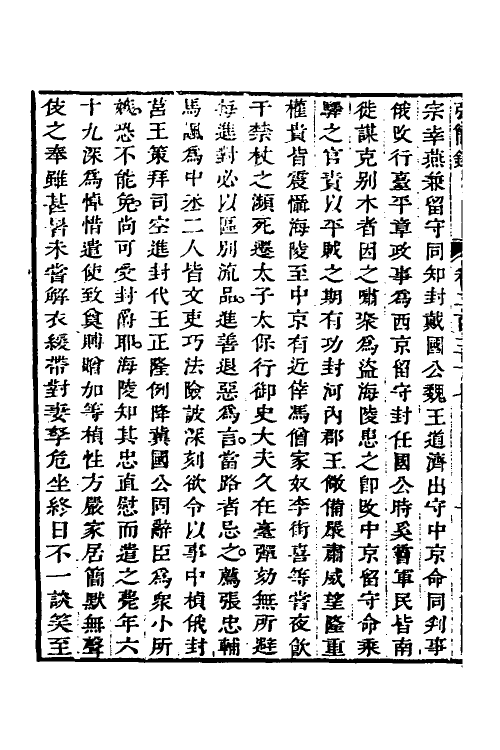 宗幸燕兼留守同知封戴國公魏王道濟出守中京命同判事
俄改行臺平章政事為西京留守封任國公時奚霫軍民皆南
徙謀克别木者因之嘯聚為盜海陵患之卽改中京留守命乘
驛之官責以平賊之期有功封河內郡王儆備嚴肅威望隆重
權貴皆震慴海陵至中京有近倖馮僧家奴李街喜等嘗夜飲
干禁杖之瀕死遷太子太保行御史大夫久在臺彈劾無所避
每進對必以區別流品進善退惡為言當路者忌之薦張忠輔
馬諷為中丞二人皆文吏巧法險詖深刻欲令以事中楨俄封
莒王策拜司空進封代王正隆例降冀國公固辭臣為衆小所
嫉恐不能免尚可受封爵耶海陵知其忠直慰而遣之薨年六
十九深為悼惜遣使致賻贈加等楨性方嚴家居簡默無聲
伎之奉雖甚暑未嘗解衣緩帶對妻孥危坐終日不一談笑至